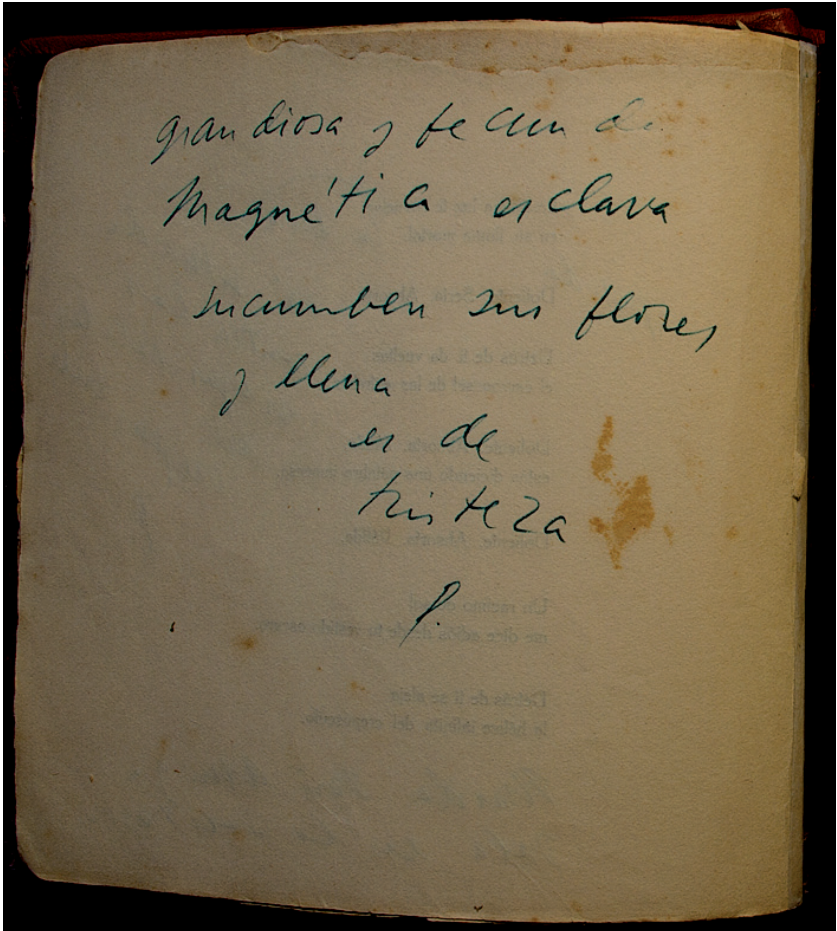 grandiosa y fecunda
Magnética esclava
sucumben sus flores
y llena
es de
tristeza
P.